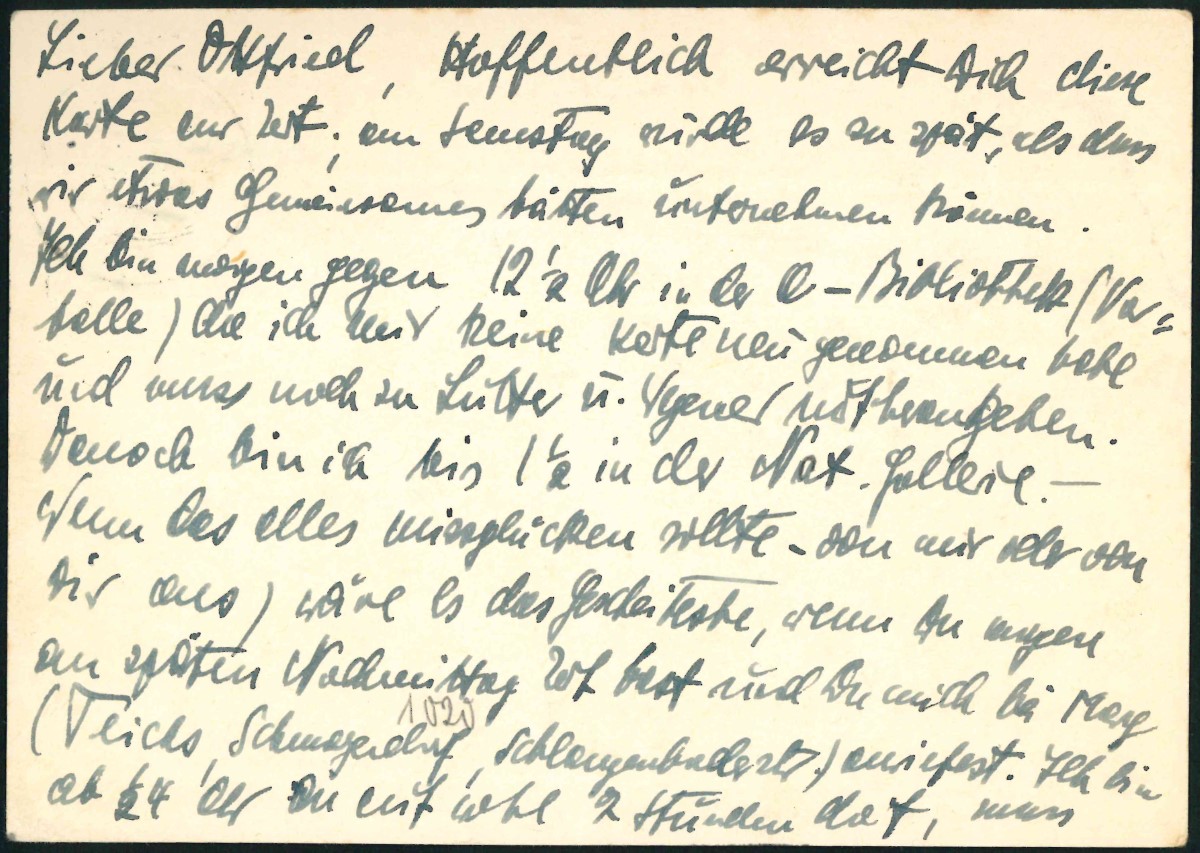 Lieber Ottfried, Hoffentlich erreicht Dich diese
Karte zur Zeit; am Samstag würde es zu spät, als dass
wir etwas Gemeinsames hätten unternehmen können.
Ich bin morgen gegen 12 1/2 Uhr in der U-Bibliothek (Vor=
halle) da ich mir keine Karte neu genommen habe
und muss noch zu Lutter u. Wegener
Danach bin ich bis 1 1/2 in der Nat. Gallerie. —
Wenn das alles missglücken sollte - von mir oder von
Dir aus) wäre es das Gescheiteste, wenn Du morgen
am späten Nachmittag Zeit hast und Du mich bei Marg
(Teichs, Schmargendorf, Schlangenbaderstr.) anrufest. Ich bin
1020
ab 1/2 4 Uhr an auf wohl 2 Stunden dort, muss